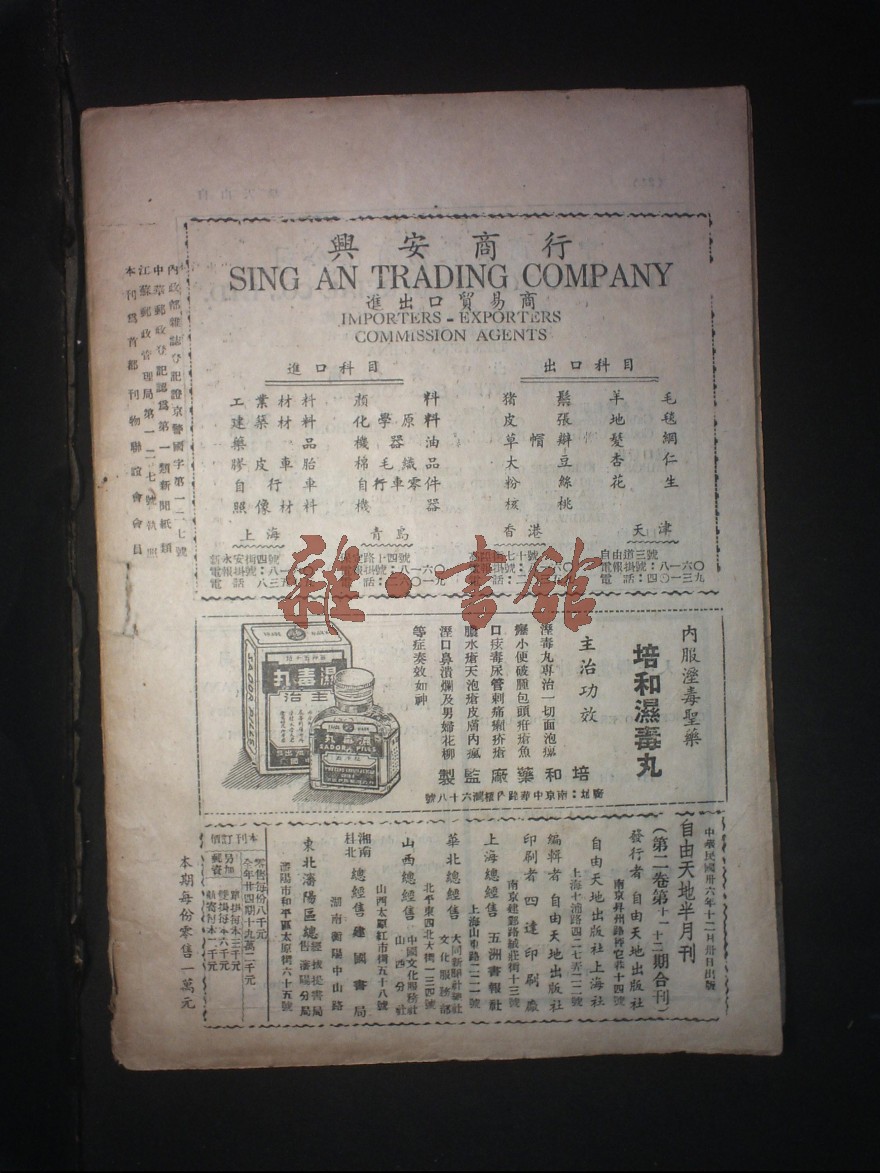 興安商行
SING AN TRADING COMPANY
進出口貿易商
IMPORTERS - EXPORTERS
COMMISSION AGENTS
進口科目
出口科目
工業材料
建築材料
藥品
膠皮車胎
自行車
照像材料
顏料
化學原料
機器油
棉毛織品
自行車零件
機器
猪鬃
皮張
草帽辮
大豆
粉絲
核桃
羊毛
地毯
髮網
杏仁
花生
上海
永安街四號
電報掛號：八一六〇
青島
電報掛號：八一六〇
香港
天津
自由道三號
電報掛號：八一六〇
電話：四〇一三九
雜·書館
內服溼毒聖藥
培和濕毒丸
主治功效
溼毒丸專治一切面泡
小便破腫包頭疳瘡魚
口痰毒尿管刺痛癩疥瘡
膿水瘡天泡瘡皮膚內瘋
溼口鼻潰爛及男婦花柳
等症奏效如神
培和藥廠監製
廠址：南京中華路六十八號
濕毒丸
主治
BADOR PILLS
中華民國卅六年十二月卅日出版
自由天地半月刊
(第二卷第十一十二期合刊)
發行者 自由天地出版社
自由天地出版社上海社
上海十浦路四二七弄二二號
編輯者 自由天地出版社
印刷者 四達印刷廠
南京建鄴路絨莊街十三號
上海總經售 五洲書報社
上海山東路二二一號
華北總經售
文化服務部
北平東四北大街一三四號
山西總經售
中國文化服務社
山西分社
山西太原紅市街五十八號
湘南
桂北
總經售 建國書局
湖南衡陽中山路
東北瀋陽區總經售
瀋陽市和平區太原街六十五號
本刊訂價
零售每份八千元
全年廿四期十九萬二千元
另加郵資
本期每份零售一萬元
內政部雜誌登記證京警國字第一二七號
中華郵政登記認爲第一類新聞紙類
江蘇郵政管理局第一二七號執照
本刊爲首都刊物聯誼會會員